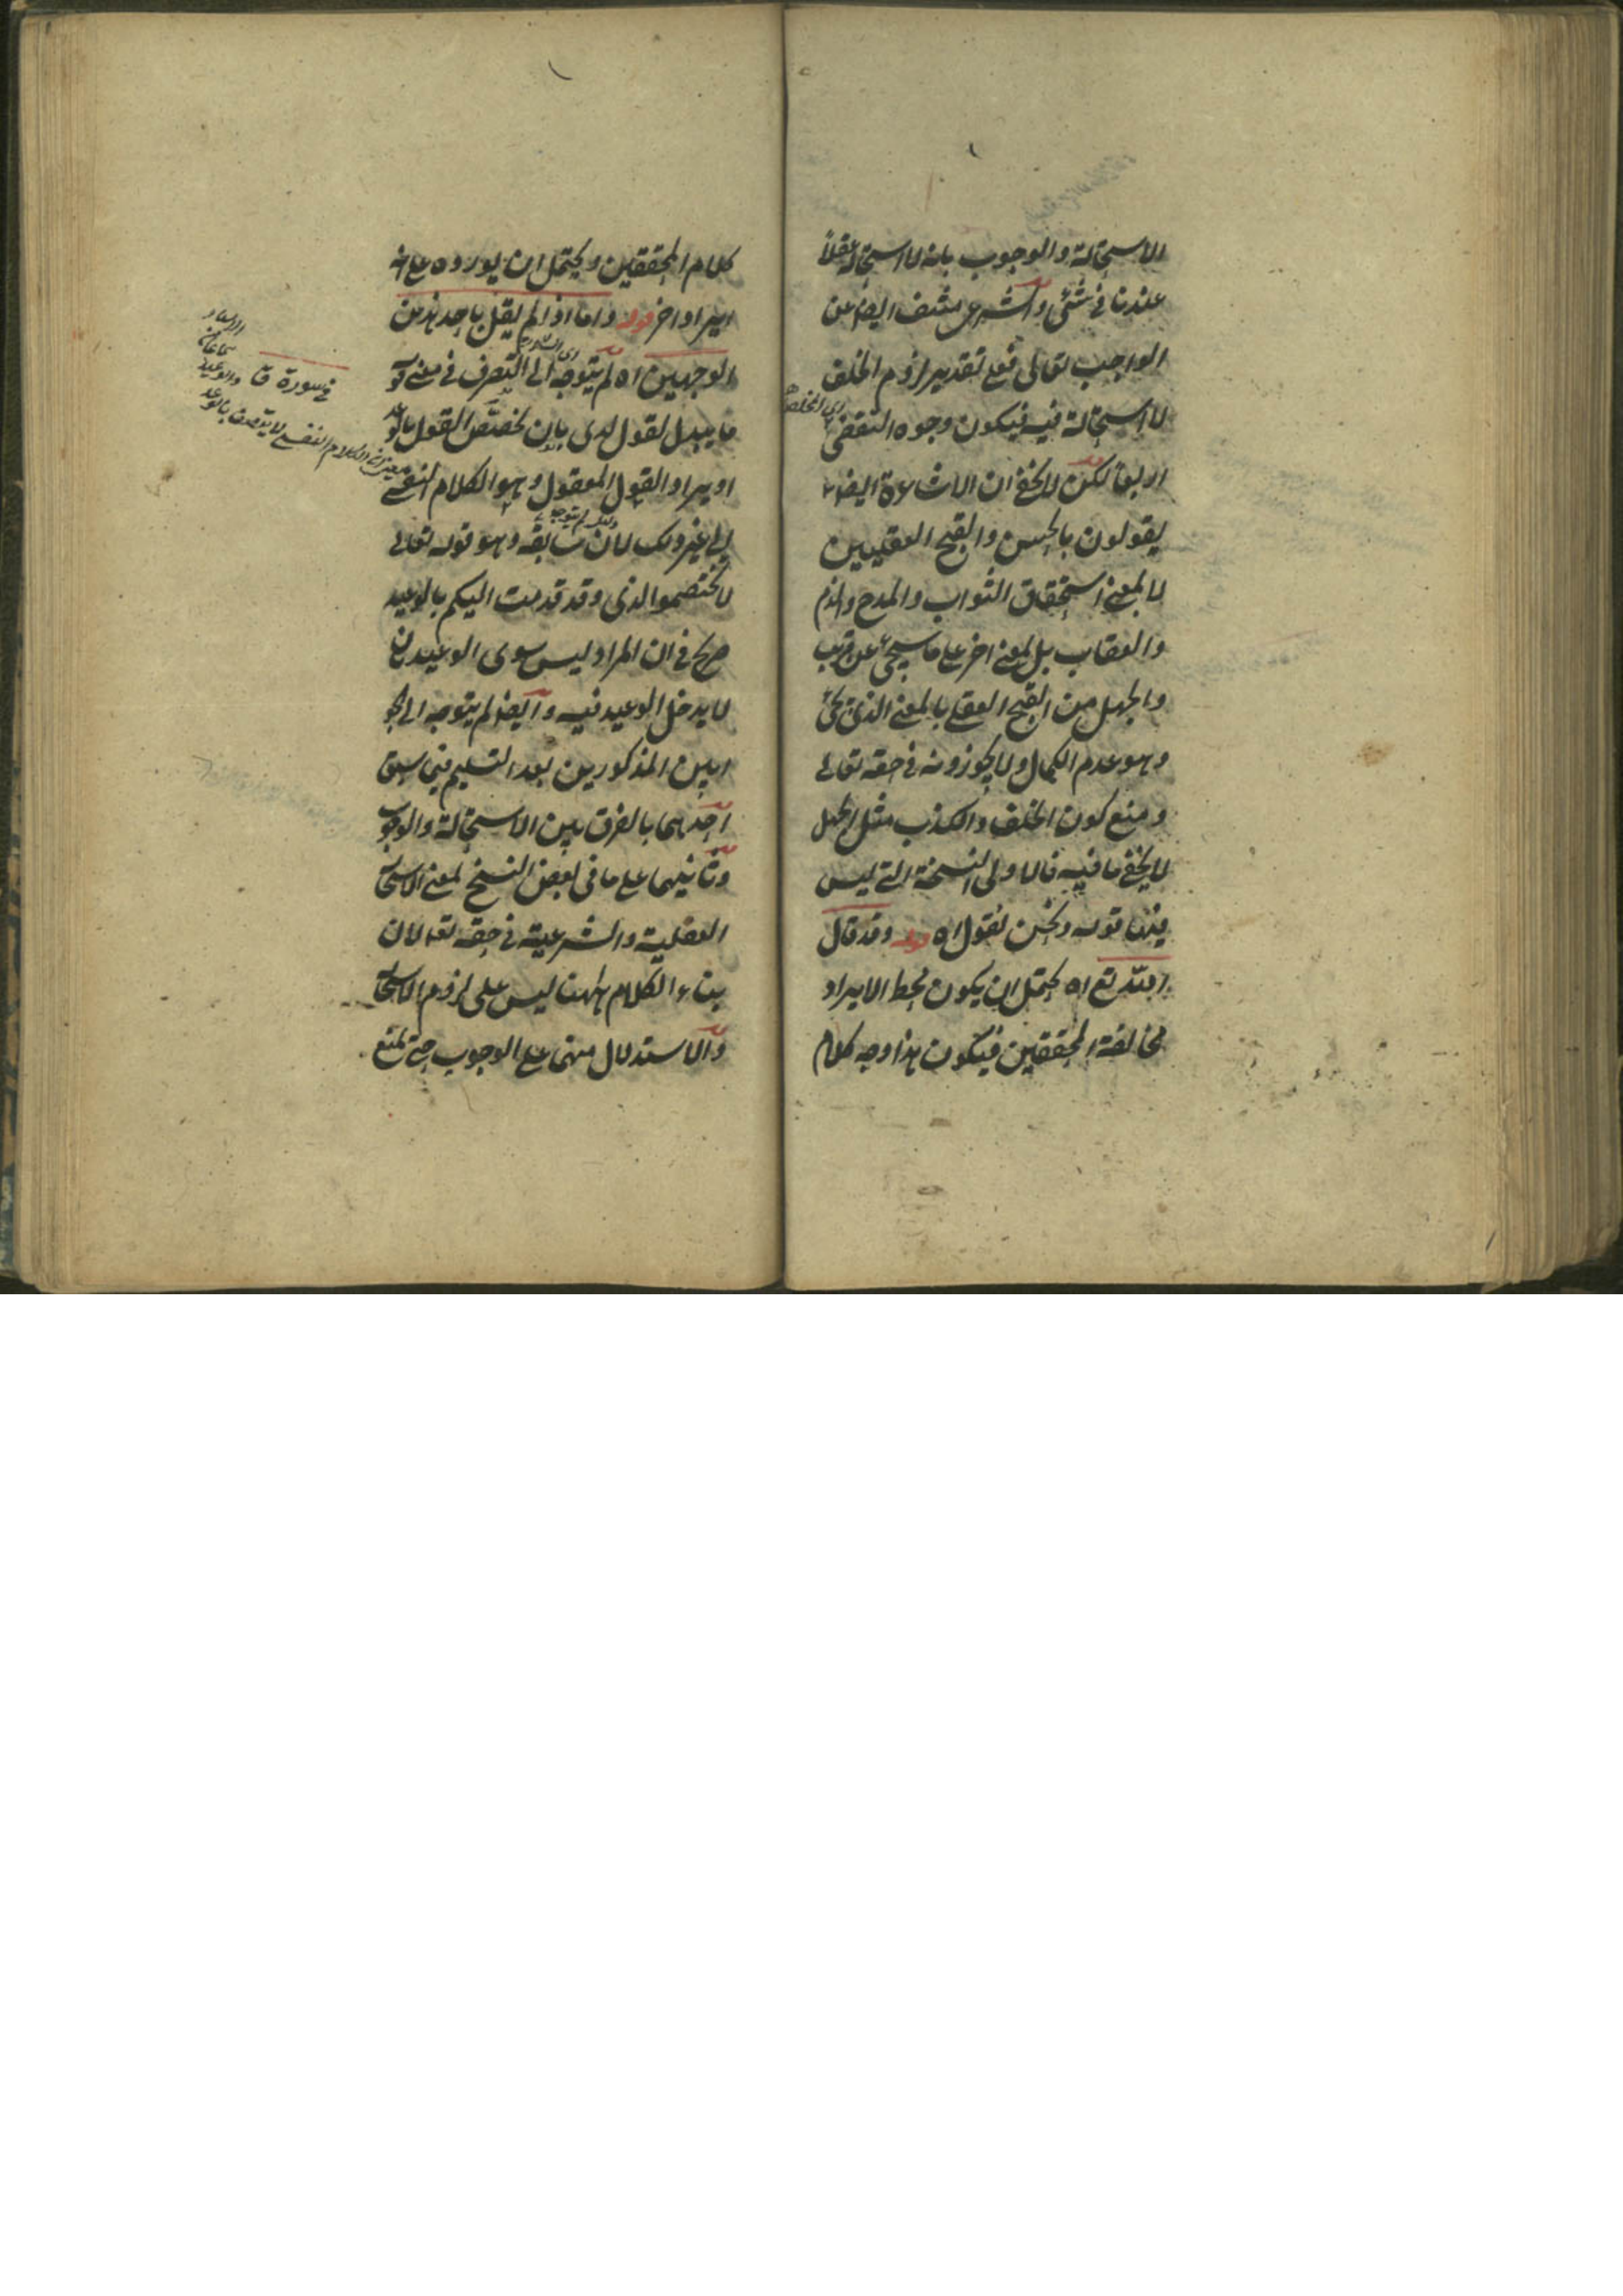 الاستحالة والوجوب بانه لا استحالة عقلاً
عندنا في شئ والشرعى منتف ايضا عن
الواجب تعالى فعلى تقدير لزوم الخلف
لا استحالة فيه فيكون وجوه النقض
اربعا لكن لا يخفى ان الاشاعرة ايضا
يقولون بالحسن والقبح العقليين
لا بمعنى استحقاق الثواب والمدح والذم
والعقاب بل بمعنى اخر على ما سيجئ عن قريب
والجهل من القبح العقلى بالمعنى الذى يجئ
وهو عدم الكمال ولا يجوزونه في حقه تعالى
ومنع كون الخلف والكذب مثل الجهل
لا يخفى ما فيه فالاولى النسخة التى ليس
فيها قوله ونحن نقول اه قوله وقد قال
الله تع اه يحتمل ان يكون محط الايراد
مخالفة المحققين فيكون هذا وجه كلام
كلام المحققين ويحتمل ان يورده على انه
ايراد اخر قوله واما اذا لم يقل باحد هذين
الوجهين اه لم يتوجه الى التصرف في معنى قوله
ما يبدل القول لدى بان يخصص القول بالوعد
او يراد القول المعقول وهو الكلام النفسى
الى غير ذلك لان سابقه وهو قوله تعالى
لا تختصموا لدى وقد قدمت اليكم بالوعيد
صريح في ان المراد ليس سوى الوعيد بان
لا يدخل الوعيد فيه وايضا لم يتوجه الى الجو
ابين المذكورين بعد التسليم فيما سبق
احدهما بالفرق بين الاستحالة والوجوب
وثانيهما على ما في بعض النسخ بمعنى الاستحالة
العقلية والشرعية في حقه تعا لان
بناء الكلام ههنا ليس على لزوم الاستحالة
والاستدلال منها على الوجوب حتى يمنع
في سورة ق
الكلام النفسى لا يتصف بالوعد
والوعيد